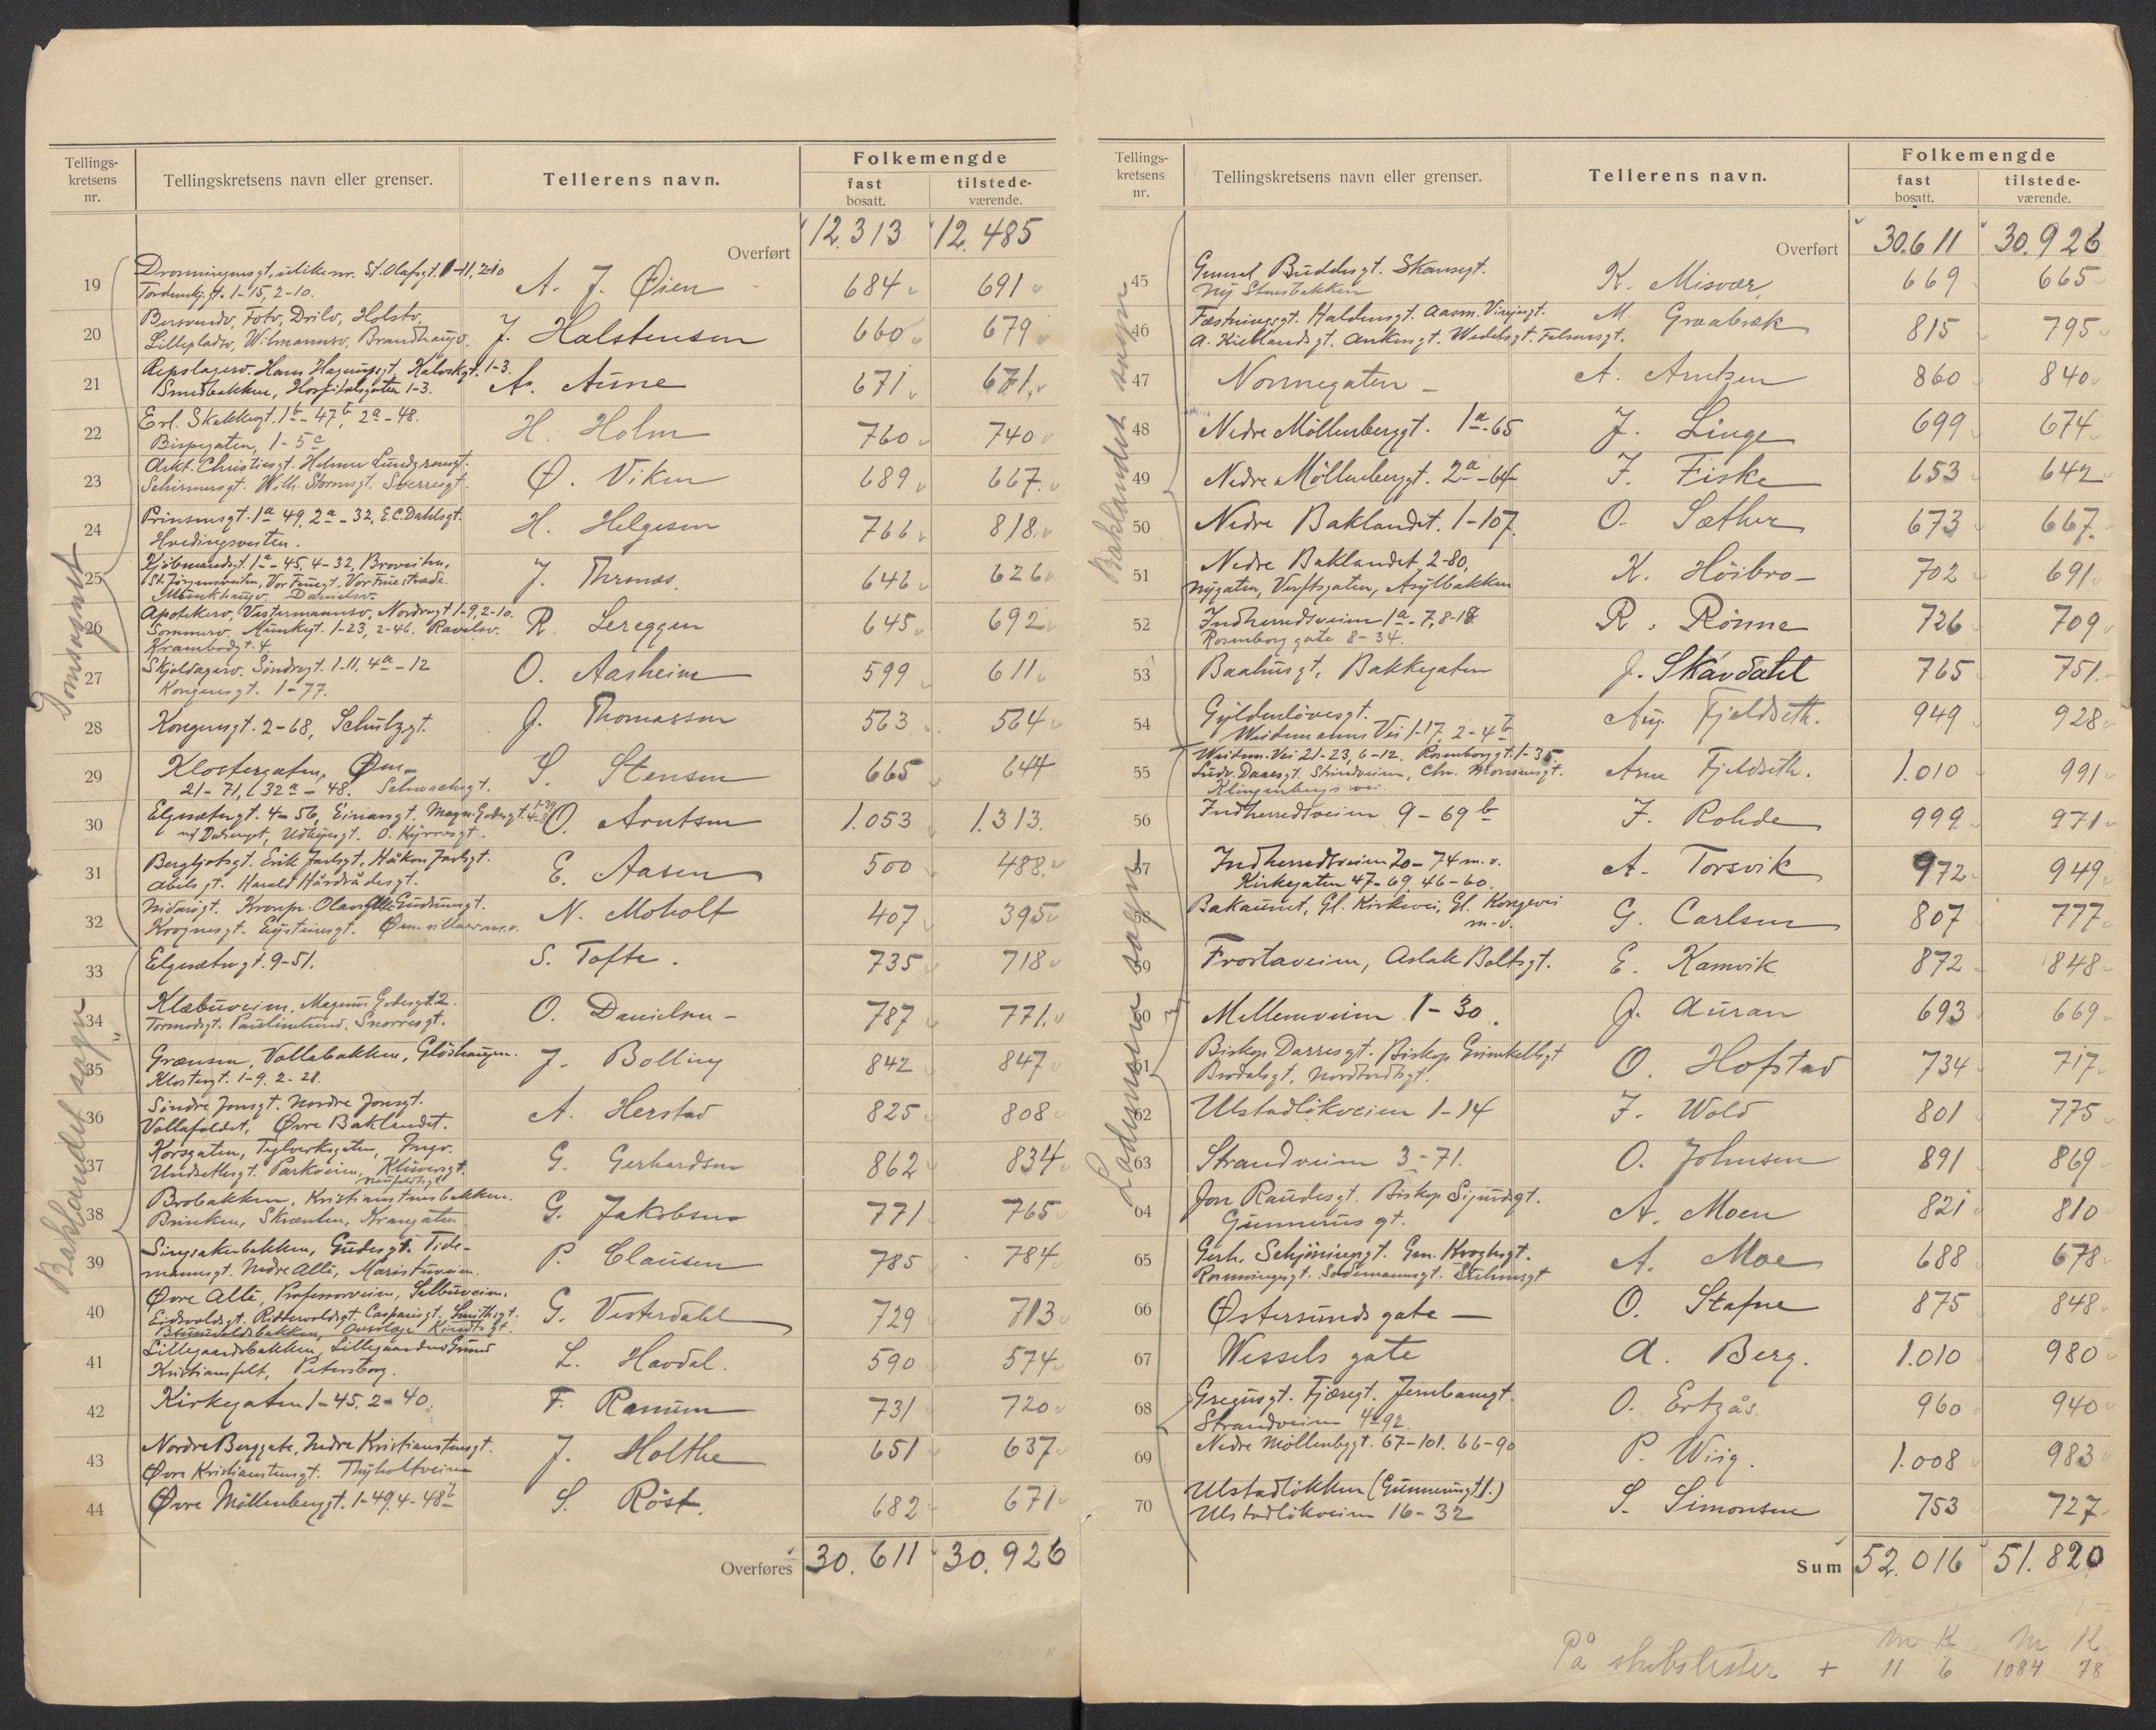 Tellings-
kretsens
nr.
Tellingskretsens navn eller grenser.
Tellerens navn.
Folkemengde
fast
bosatt.
tilstede-
værende.
Overført 12.313 12.485
19 Dronningensgt, ulike nr. St. Olafsgt. 1-11, 2-10
Tordenskj. gt. 1-15, 2-10. A. J. Øien 684 691
20 Bersvendv, Fotv, Drilv, Holstv,
Lillepladsv, Wilmannsv. Brandhaugv. J. Halstensen 660 679
21 Repslagerv. Hans Hagerupsgt, Kalvskgt. 1-3.
Smedbakken, Hospitalsgaten 1-3. A. Aune 671 671
22 Erl. Skakkesgt. 1b-47b, 2a-48.
Bispegaten, 1-5c H. Holm 760 740
23 Arkt. Christiesgt. Helmer Lundgrensgt.
Schirmersgt. Wilh. Stormsgt. Sverresgt. Ø. Viken 689 667
24 Prinsensgt. 1a 49, 2a-32, E.C. Dahlsgt.
Hvedingsveiten. H. Helgesen 766 818
25 Kjöbmandsgt. 1a-45, 4-32, Broveiten,
St. Jörgensveiten, Vor Fruegt. Vor Fruestræde.
Munkhaugv. Danielsv. J. Thronæs 646 626
26 Apothekerv, Vestermannsv, Nordregt 1-9, 2-10.
Sommerv. Munkegt. 1-23, 2-46. Ravelsv.
Krambodgt. 4 R. Lereggen 645 692
27 Skjoldagerv. Söndregt. 1-11. 4a-12
Kongensgt. 1-77. O. Aasheim 599 611
28 Kongensgt. 2-68, Schultzgt. J. Thomassen 563 564
29 Klostergaten, Øen
21-71, 32a-48. Schwachsgt. S. Stensen 665 644
30 Elgesetergt. 4-56, Einarsgt. Magn. Godesgt. 1-39 4-8
O. Kyrresgt. O. Arntsen 1.053 1.313.
31 Bergljotsgt. Erik Jarlsgt, Håkon Jarlsgt.
Abels gt. Harald Hårdrådesgt. E. Aasen 500 488
32 Nidarögt. Kronpr. Olavs Alle Gudrunsgt.
Krognesgt. Eystensgt. N. Moholt 407 395
33 Elgesetergt. 9-51. S. Tofte. 735 718
34 Klæbuveien, Magnus Godesgt. 2.
Tormodsgt. Paulinelund. Snorresgt. O. Danielsen 787 771
35 Grænsen, Vollabakken, Glöshaugen.
Klostergt. 1-9. 2-28. J. Bolling 842 847
36 Söndre Jonsgt. Nordre Jonsgt.
Vollafaldet, Øvre Baklandet. A. Herstad 825 808
37 Korsgaten, Teglverksgaten, Ingv.
Undsetlsgt. Parkveien, Klüversgt. G. Gerhardsen 862 834
38 Brobakken, Kristianstensbakken.
Brinken, Skrænten, Krangaten G. Jakobsen 771 765
39 Singsakerbakken, Gudesgt. Tide-
mannsgt. Nedre Alle, Maristuveien. P. Clausen 785 784
40 Øvre Alle, Professorveien, Selbuveien.
Eidsvoldsgt. Rittervoldsgt. Casparisgt. Smithsgt.
G. Vesterdahl 729 713
41 Lillegaardsbakken,
Kristiansfelt, Petersborg. L. Havdal. 590 574
42 Kirkegaten 1-45. 2-40. F. Ranum 731 720
43 Nordre Berggate, Nedre Kristianstensgt.
Øvre Kristianstensgt. Thyholtveien J. Holthe 651 637
44 Øvre Möllenberggt. 1-49. 4-48b S. Röst. 682 671
Overføres 30.611 30.926
Domsognet
Baklandet sogn
Tellings-
kretsens
nr.
Tellingskretsens navn eller grenser.
Tellerens navn.
Folkemengde
fast
bosatt.
tilstede-
værende.
Overført 30.611 30.926
45 General Buddesgt. Skansegt.
Ny Stuebakken K. Misvær 669 665
46 Fæstningsgt. Haldensgt. Aasm. Vinjesgt.
A. Kiellandsgt. Ankersgt. Wedelsgt. Falsensgt. M. Graabræk 815 795
47 Nonnegaten A. Arntzen 860 840
48 Nedre Möllenberggt. 1a-65 J. Linge 699 674
49 Nedre Möllenberggt. 2a-64 F. Fiske 653 642
50 Nedre Baklandet. 1-107. O. Sæther 673 667.
51 Nedre Baklandet, 2-80,
Nygaten, Verftsgaten, Asylbakken K. Höibro 702 691
52 Indherredsveien 1a-7, 8-18
Rosenborg gate 8-34. R. Rönne 726 709
53 Baahusgt, Bakkegaten J. Skavdahl 765 751.
54 Gyldenlövesgt.
Weidemanns Vei 1-17. 2-4b Aug. Fjeldseth. 949 928
55 Weidem. Vei 21-23, 6-12. Rosenborggt. 1-35
Ludv. Daaesgt. Strindveien, Chr. Monsensgt.
Klingenbergs vei. Arne Fjeldseth. 1.010 991
56 Indherredsveien 9-69b F. Rohde 999 971
57 Indherredsveien 20-74 m.v.
Kirkegaten 47-69. 46-60. A. Torsvik 972 949
58 Bakaunet, Gl. Kirkevei, Gl. Kongevei
m.v. G. Carlsen 807 777
59 Frostaveien, Aslak Boltsgt. E. Kamvik 872 848
60 Mellemveien 1-30. J. Auran 693 669
61 Biskop Darresgt. Biskop Grimkellsgt
Brodalsgt, Nordtvedtsgt. O. Hofstad 734 717.
62 Ulstadlökveien 1-14 F. Wold 801 775
63 Strandveien 3-71. O. Johnsen 891 869
64 Jon Raudesgt. Biskop Sigurdsgt.
Gunnerus gt. A. Moen 821 810
65 Gerh. Schjöningsgt. Gen. Kroghsgt.
A. Moe 688 678
66 Østersunds gate O. Stafne 875 848
67 Wessels gate A. Berg. 1.010 980
68 Gregusgt. Fjæregt. Jernbanegt.
Strandveien 4-92 O. Ertzås. 960 940
69 Nedre Möllenbggt. 67-101. 66-90 P. Wiig. 1.008 983
70 Ulstadlökken (Gunnerusgt 1.)
Ulstadlökveien 16-32 S. Simonsen 753 727
Sum 52.016 51.820
Baklandet sogn
Lademoens sogn
M K M K
På skibslister + 11 6 1084 78